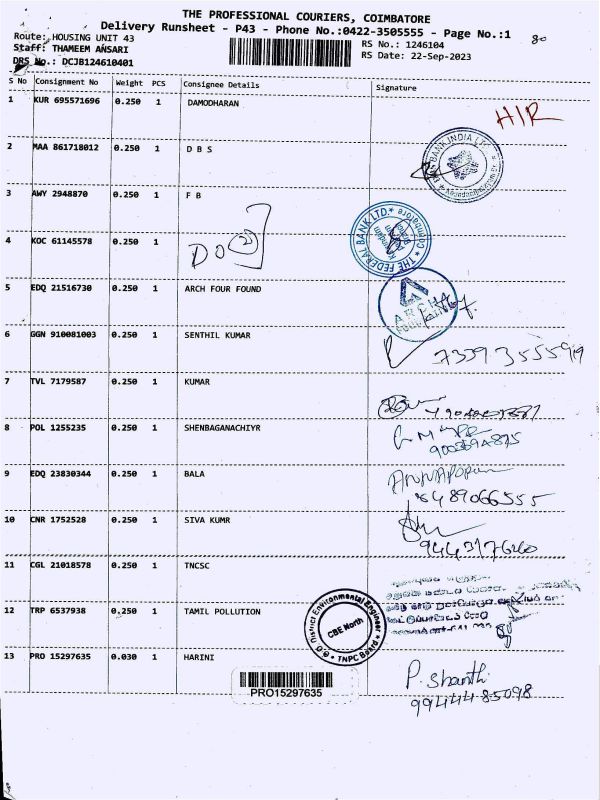 THE PROFESSIONAL COURIERS, COIMBATORE
Delivery Runsheet - P43 - Phone No.:0422-3505555 - Page No.:1
80
Route: HOUSING UNIT 43
RS No.: 1246104
Staff: THAMEEM ANSARI
RS Date: 22-Sep-2023
DRS No.: DCJB124610401
S No Consignment No Weight PCS Consignee Details Signature
1 KUR 695571696 0.250 1 DAMODHARAN
HIR
2 MAA 861718012 0.250 1 D B S
BANK INDIA LTD
3 AWY 2948870 0.250 1 F B
THE FEDERAL BANK LTD. * Coimbatore
4 KOC 61145578 0.250 1
DO
5 EDQ 21516730 0.250 1 ARCH FOUR FOUND
ARCH
6 GGN 910081003 0.250 1 SENTHIL KUMAR
7 TVL 7179587 0.250 1 KUMAR
8 POL 1255235 0.250 1 SHENBAGANACHIYR
9003694875
9 EDQ 23830344 0.250 1 BALA
8489066555
10 CNR 1752528 0.250 1 SIVA KUMR
11 CGL 21018578 0.250 1 TNCSC
12 TRP 6537938 0.250 1 TAMIL POLLUTION
District Environmental Engineer
CBE North
TNPC Board
13 PRO 15297635 0.030 1 HARINI
PRO15297635
P. Shanthi
9944485098